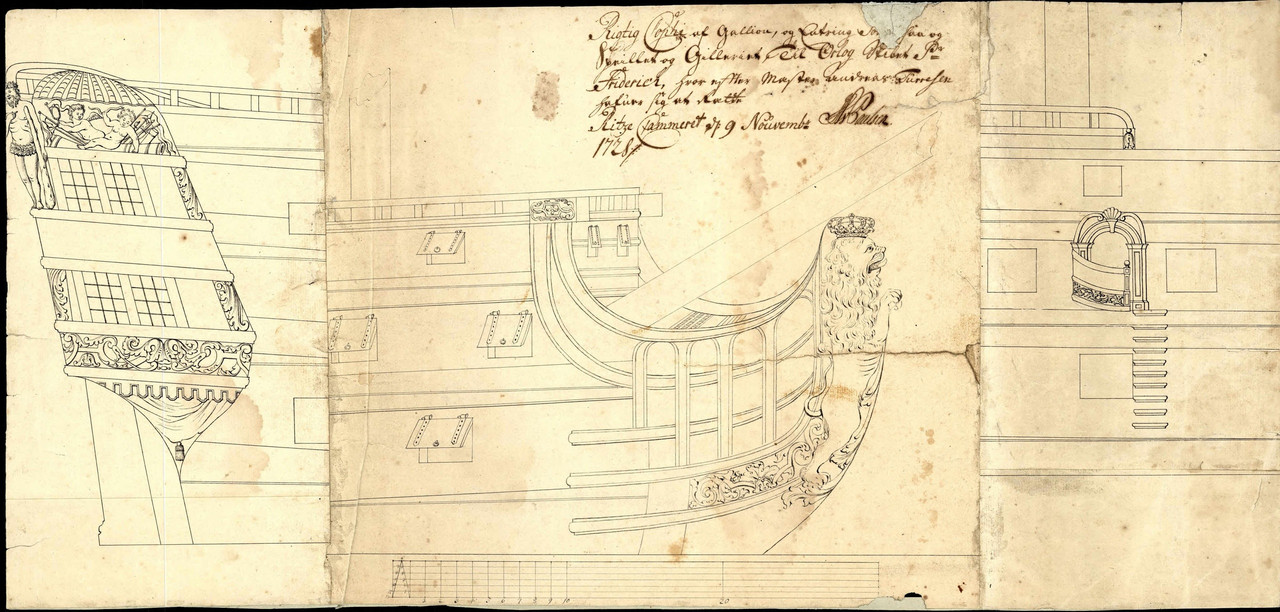 Rigtig Copie af Gallion, og
Speillet og Gilleriet Til Orlog Skibet Pr
Friderich, hvor efter Mester Andreas Turresen
hafuer sig at Rætte
Ritze Cammeret d 9 Nouvembr
1728
10 20